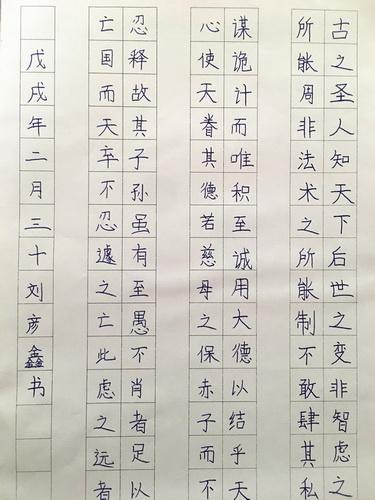 古之圣人知天下后世之变非智虑之
所能周非法术之所能制不敢肆其私
谋诡计而唯积至诚用大德以结乎天
心使天眷其德若慈母之保赤子而不
忍释故其子孙虽有至愚不肖者足以
亡国而天卒不忍遽之亡此虑之远者
戊戌年二月三十刘彦鑫书